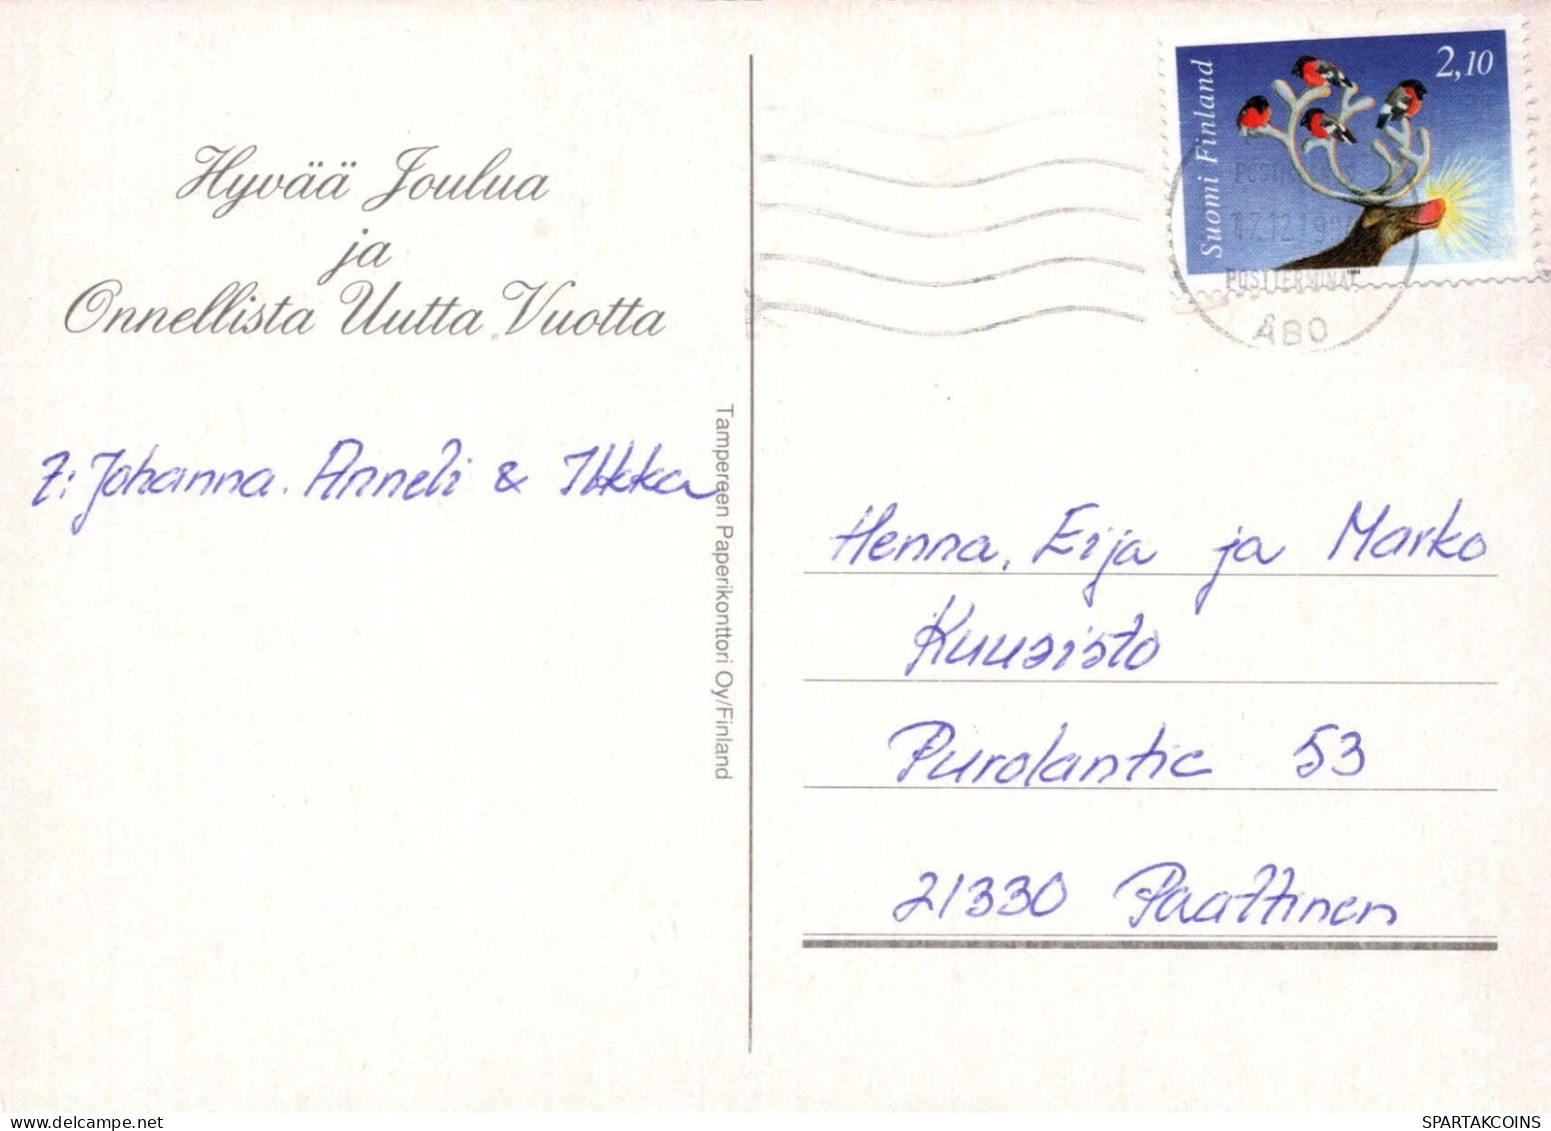 Hyvää Joulua
ja
Onnellista Uutta Vuotta
T: Johanna. Anneli & Ilkka
Tampereen Paperikonttori Oy/Finland
Suomi Finland
2,10
POSTTERMINAL
ÅBO
Henna, Eija ja Marko
Kuusisto
Purolantie 53
21330 Paattinen
SPARTAKCOINS